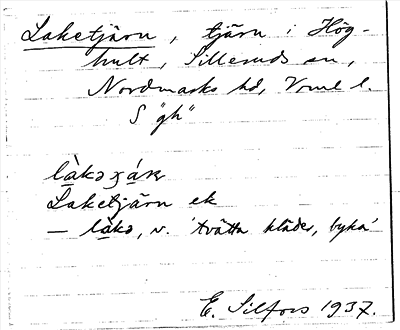 Laketjärn, tjärn i Hög-
hult, Silleruds sn,
Nordmarks hd, Vrml l.
S "gh"
làkə
Laketjärn ek
— làkə, v. 'tvätta kläder, byka'
E. Silfors 1937.